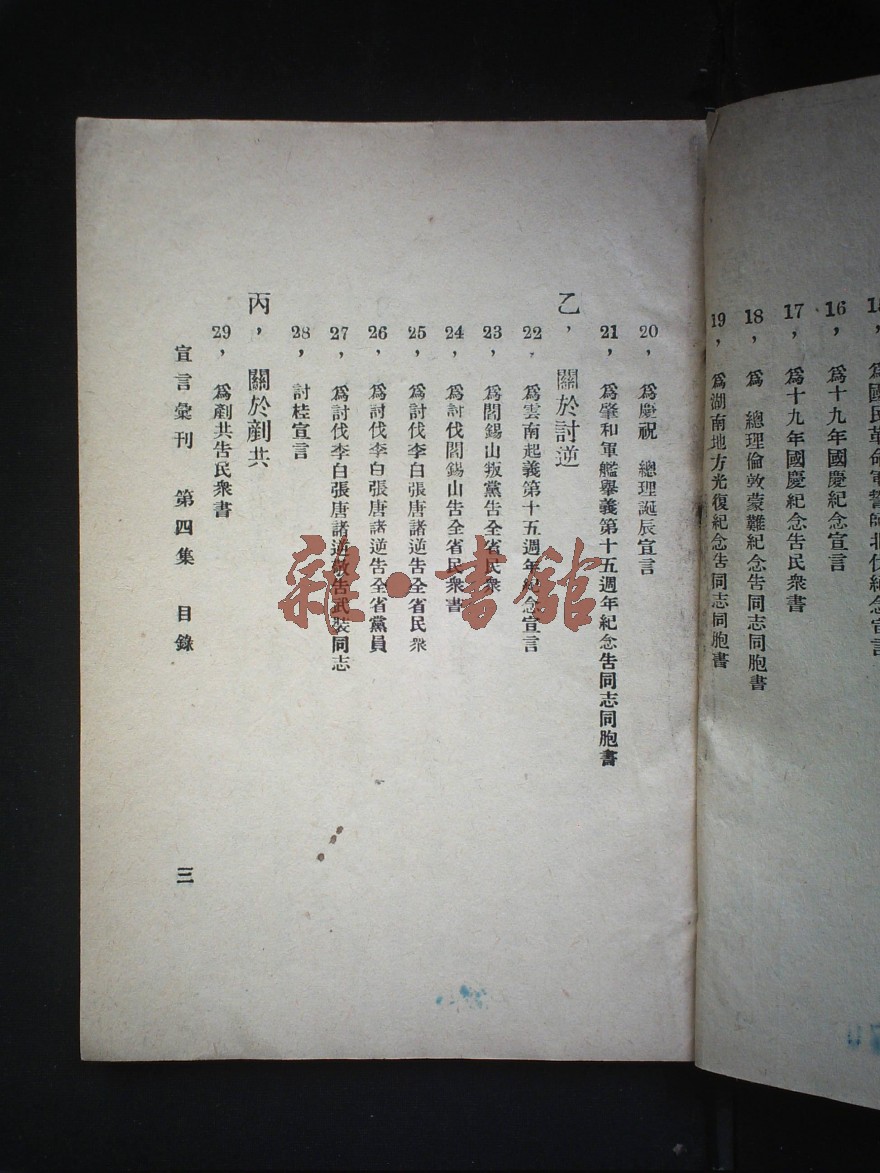 爲國民革命軍誓師北伐紀念宣言
16，爲十九年國慶紀念宣言
17，爲十九年國慶紀念告民衆書
18，爲　總理倫敦蒙難紀念告同志同胞書
19，爲湖南地方光復紀念告同志同胞書
20，爲慶祝　總理誕辰宣言
21，爲肇和軍艦舉義第十五週年紀念告同志同胞書
22，爲雲南起義第十五週年紀念宣言
乙，關於討逆
23，爲閻錫山叛黨告全省民衆
24，爲討伐閻錫山告全省民衆書
25，爲討伐李白張唐諸逆告全省民衆
26，爲討伐李白張唐諸逆告全省黨員
27，爲討伐李白張唐諸逆敬告武裝同志
28，討桂宣言
丙，關於剷共
29，爲剷共告民衆書
宣言彙刊　第四集　目錄
三
雜·書館